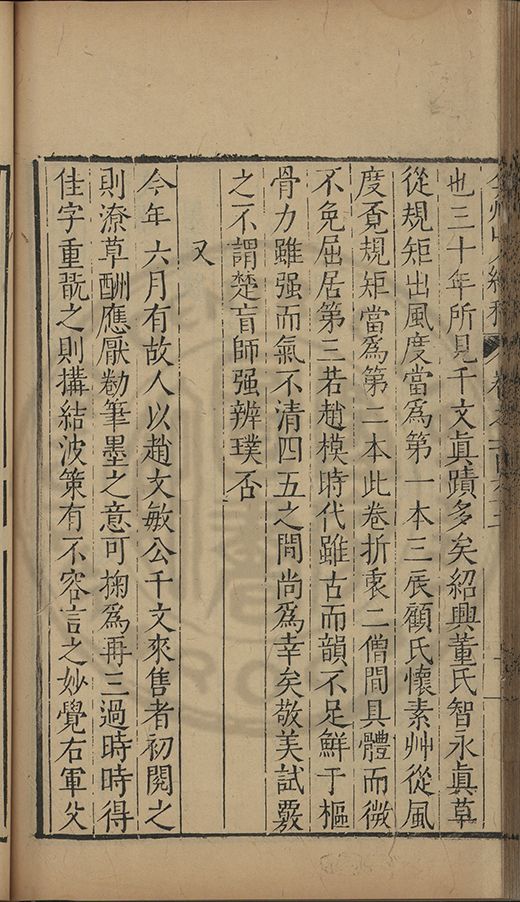 也三十年所見千文眞蹟多矣紹興董氏智永眞草
從規矩出風度當爲第一本三辰顧氏懷素艸從風
度覔規矩當爲第二本此卷折衷二僧間具體而微
不免屈居第三若趙模時代雖古而韻不足鮮于樞
骨力雖强而氣不清四五之間尚爲幸矣敬美試覈
之不謂楚盲師强辨璞否
又
今年六月有故人以趙文敏公千文來售者初閱之
則潦草酬應厭勌筆墨之意可掬爲再三過時時得
佳字重翫之則搆結波策有不容言之妙覺右軍父